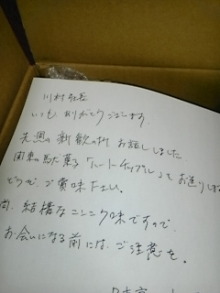 川村社長
いつも ありがとうございます
先週の新歓の時 お話ししました
関東の駄菓子「ハートチップル」を お送りします
どうぞ、ご賞味下さい。
尚、結構なニンニク味ですので、
お会いになる前には、ご注意を。